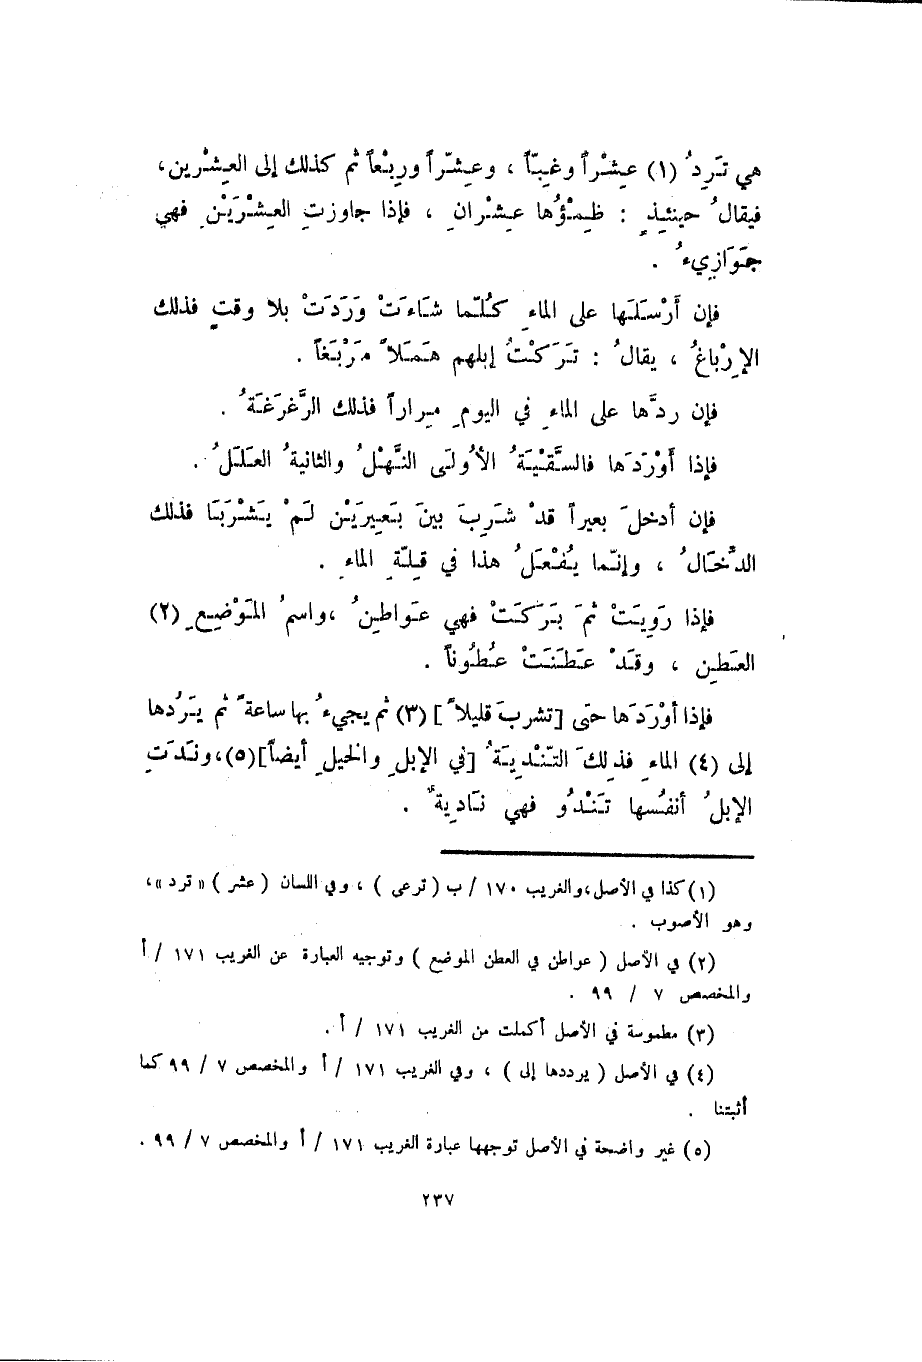 هي تَرِدُ (١) عِشْراً وغِبّاً ، وعِشْراً ورِبْعاً ثم كذلك إلى العِشْرين،
فيقالُ حينئِذٍ : ظِمْؤُها عِشْرانِ ، فإذا جاوزتِ العِشْرَيْنِ فهي
جَوَازِيءُ .
فإن أَرْسَلَها على الماءِ كُلّما شَاءَتْ وَرَدَتْ بلا وقتٍ فذلك
الإرْباغُ ، يقالُ : تَرَكْتُ إبلهم هَمَلاً مَرْبَغاً .
فإن ردَّها على الماءِ في اليومِ مِراراً فذلك الرَّغرَغَةُ .
فإذا أَوْرَدَها فالسَّقْيَةُ الأُولَى النَّهْلُ والثانيةُ العَلَلُ .
فإن أدخلَ بعيراً قدْ شَرِبَ بينَ بَعِيرَيْن لَمْ يَشْرَبَا فذلك
الدِّخَالُ ، وإنّما يُفْعَلُ هذا في قِلّةِ الماءِ .
فإذا رَوِيَتْ ثمَ بَرَكَتْ فهي عَواطِنُ ،واسمُ المَوْضِعِ (٢)
العَطَن ، وقَدْ عَطَنَتْ عُطُوناً .
فإذا أوْرَدَها حتى [تشربَ قليلاً] (٣) ثم يجيءُ بها ساعةً ثم يَرُدها
إلى (٤) الماءِ فذلِكَ التَنْدِيَةُ [في الإبلِ والخيلِ أيضاً](٥)،ونَدَتِ
الإبلُ أنفُسها تَنْدُو فهي نَادِيةٌ .
(١) كذا في الأصل،والغريب ١٧٠ / ب ( ترعى ) ، وفي اللسان ( عشر ) « ترد »،
وهو الأصوب .
(٢) في الأصل ( عواطن في العطن الموضع ) وتوجيه العبارة عن الغريب ١٧١ / أ
والمخصص ٧ / ٩٩ .
(٣) مطموسة في الأصل أكملت من الغريب ١٧١ / أ .
(٤) في الأصل ( يرددها إلى ) ، وفي الغريب ١٧١ / أ والمخصص ٧ / ٩٩ كما
أثبتنا .
(٥) غير واضحة في الأصل توجهها عبارة الغريب ١٧١ / أ والمخصص ٧ / ٩٩ .
٢٣٧